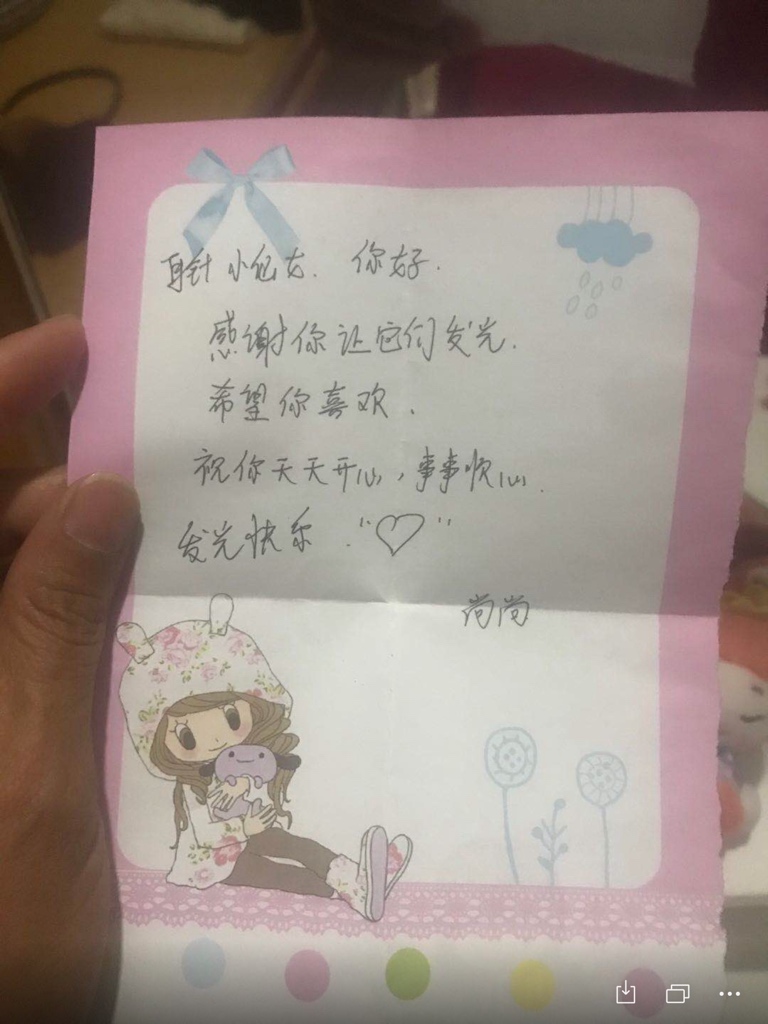 耳针小仙女. 你好.
感谢你让它们发光.
希望你喜欢.
祝你天天开心,事事顺心.
发光快乐."♡"
尚尚